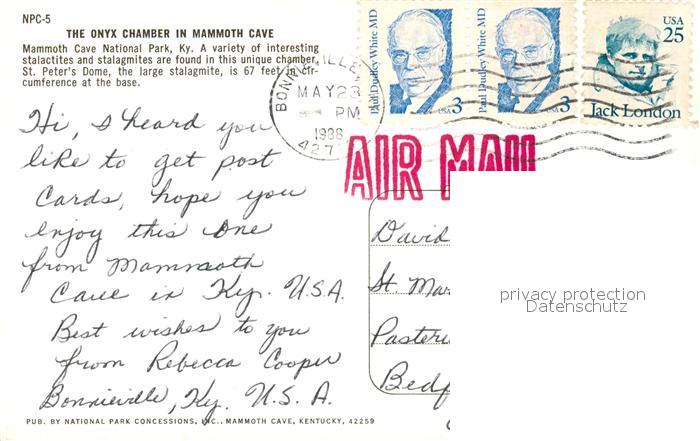 NPC-5
THE ONYX CHAMBER IN MAMMOTH CAVE
Mammoth Cave National Park, Ky. A variety of interesting
stalactites and stalagmites are found in this unique chamber.
St. Peter's Dome, the large stalagmite, is 67 feet in cir-
cumference at the base.
Hi, I heard you
like to get post
Cards, hope you
enjoy this one
from Mammoth
Cave in Ky. U.S.A.
Best wishes to you
from Rebecca Cooper
Bonnieville, Ky. U.S.A.
PUB. BY NATIONAL PARK CONCESSIONS, INC., MAMMOTH CAVE, KENTUCKY, 42259
MAY 23
PM
1988
427
Paul Dudley White MD
USA 3
Paul Dudley White MD
USA 3
USA
25
Jack London
AIR MAIL
David
St. Mar
Bedf
privacy protection
Datenschutz